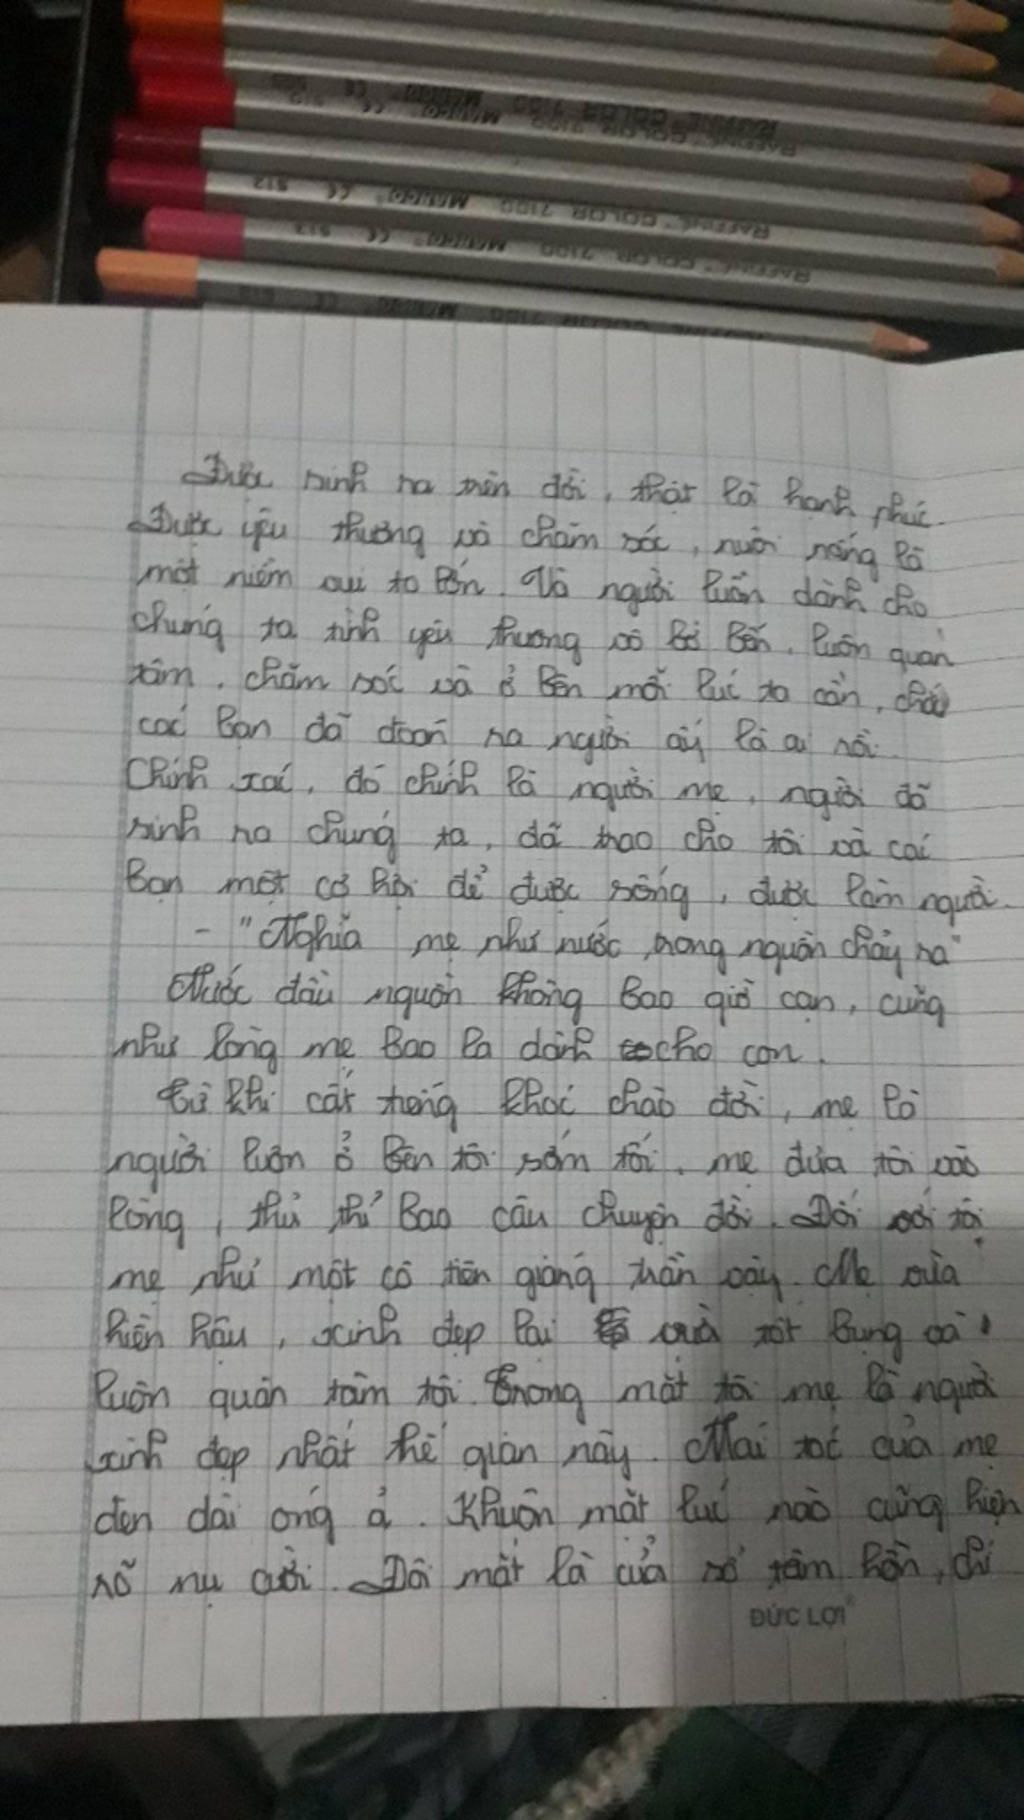 RAFFINÉ "COLOR 7100 MARCO CE
RAFFINÉ "COLOR 7100 MARCO CE 512
RAFFINÉ "COLOR 7100 MARCO CE 512
RAFFINÉ "COLOR 7100 MARCO CE 512
COLOR 7100 MARCO CE
Được sinh ra trên đời, thật là hạnh phúc.
Được yêu thương và chăm sóc, nuôi nấng là
một niềm vui to lớn. Và người luôn dành cho
chúng ta tình yêu thương vô bờ bến, luôn quan
tâm, chăm sóc và ở bên mỗi lúc ta cần, chắc
các bạn đã đoán ra người ấy là ai rồi.
Chính xác, đó chính là người mẹ, người đã
sinh ra chúng ta, đã trao cho tôi và các
bạn một cơ hội để được sống, được làm người.
- "Nghĩa mẹ như nước trong nguồn chảy ra"
Nước đầu nguồn không bao giờ cạn, cũng
như lòng mẹ bao la dành cho con.
Từ khi cất tiếng khóc chào đời, mẹ là
người luôn ở bên tôi sớm tối, mẹ đưa tôi vào
lòng, thủ thỉ bao câu chuyện đời. Đối với tôi
mẹ như một cô tiên giáng trần vậy. Mẹ vừa
hiền hậu, xinh đẹp lại vừa tốt bụng và
luôn quan tâm tôi. Trong mắt tôi mẹ là người
xinh đẹp nhất thế gian này. Mái tóc của mẹ
đen dài óng ả. Khuôn mặt lúc nào cũng hiện
rõ nụ cười. Đôi mắt là cửa sổ tâm hồn, chỉ
ĐỨC LỢI